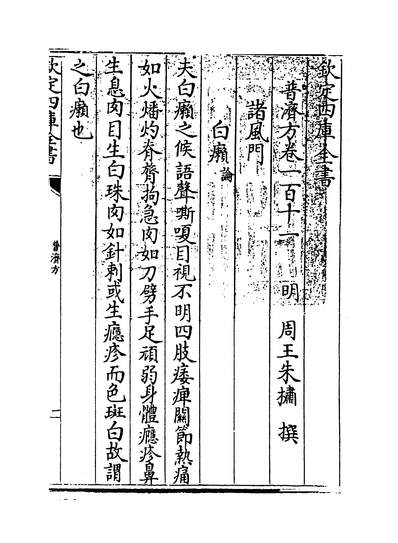 欽定四庫全書
普濟方卷一百十一 明 周王朱橚 撰
諸風門
白癩論
夫白癩之候語聲嘶嗄目視不明四肢痿痺關節熱痛
如火燔灼脊膂拘急肉如刀劈手足頑弱身體癮疹鼻
生息肉目生白珠肉如針刺或生癮疹而色斑白故謂
之白癩也
欽定四庫全書
普濟方
二